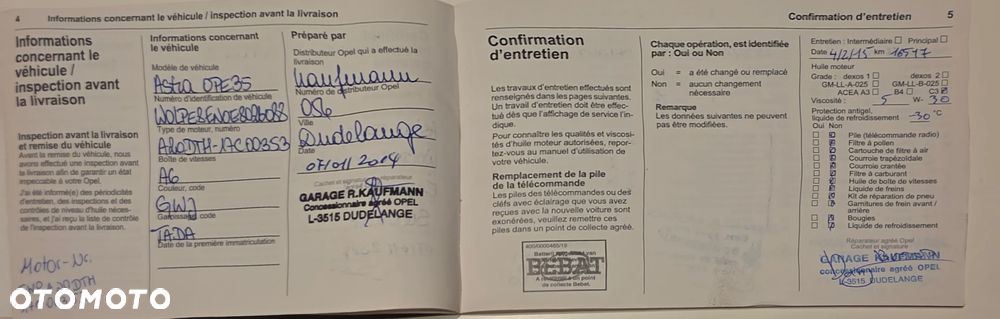 4 Informations concernant le véhicule / inspection avant la livraison
Informations
concernant le
véhicule /
inspection avant
la livraison
Inspection avant la livraison
et remise du véhicule
Avant la remise du véhicule, nous
avons effectué une inspection avant
la livraison afin de garantir un état
impeccable à votre Opel.
J'ai été informé(e) des périodicités
d'entretien, des inspections et des
contrôles de niveau d'huile néces-
saires, et j'ai reçu la liste de contrôle
de l'inspection avant la livraison.
Motor-Nr.
Informations concernant
le véhicule
Modèle de véhicule
Astra OPE35
Numéro d'identification de véhicule
Type de moteur, numéro
Boîte de vitesses
A6
Couleur, code
GWJ
Garnissage, code
TADA
Date de la première immatriculation
Préparé par
Distributeur Opel qui a effectué la
livraison
Kaufmann
Numéro de distributeur Opel
Ville
Dudelange
Date
07/01/2014
Cachet et signature du réparateur
GARAGE R.KAUFMANN
Concessionnaire agréé OPEL
L-3515 DUDELANGE
Confirmation d'entretien 5
Confirmation
d'entretien
Les travaux d'entretien effectués sont
renseignés dans les pages suivantes.
Un travail d'entretien doit être effec-
tué dès que l'affichage de service l'in-
dique.
Pour connaître les qualités et viscosi-
tés d'huile moteur autorisées, repor-
tez-vous au manuel d'utilisation de
votre véhicule.
Remplacement de la pile
de la télécommande
Les piles des télécommandes ou des
clefs avec éclairage que vous avez
reçues avec la nouvelle voiture sont
exonérées, veuillez remettre ces
piles dans un point de collecte agréé.
BEBAT
A remettre à un point
de collecte Bebat.
Chaque opération, est identifiée
par : Oui ou Non
Oui = a été changé ou remplacé
Non = aucun changement
nécessaire
Remarque
Les données suivantes ne peuvent
pas être modifiées.
Entretien : Intermédiaire Principal
Date 4/2/15 km 16517
Huile moteur
Grade : dexos 1 dexos 2
GM-LL-A-025 GM-LL-B-025
ACEA A3 B4 C3
Viscosité : 5 W- 30
Protection antigel,
liquide de refroidissement -30 °C
Oui Non
Pile (télécommande radio)
Filtre à pollen
Cartouche de filtre à air
Courroie trapézoïdale
Courroie crantée
Filtre à carburant
Huile de boîte de vitesses
Liquide de freins
Kit de réparation de pneu
Garnitures de frein avant /
arrière
Bougies
Liquide de refroidissement
Réparateur agréé Opel
Cachet et signature
GARAGE R.KAUFMANN
concessionnaire agréé OPEL
L-3515 DUDELANGE
OTOMOTO